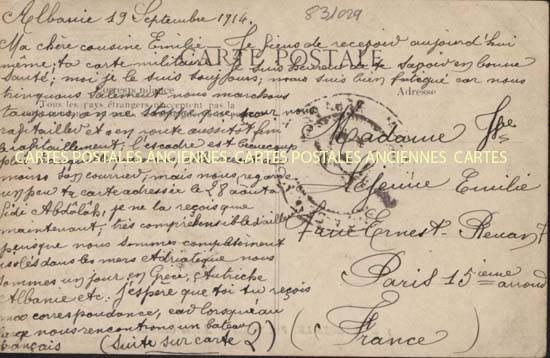 Albanie 19 Septembre 1914.
831029
Ma chère cousine Emilie, Je viens de recevoir aujourd'hui
même, ta carte militaire. Je suis de te savoir en bonne
CARTE POSTALE
Santé; moi je le suis toujours, mais suis bien fatigué car nous
Correspondance
Adresse
trinquons salement nous marchons
Tous les pays étrangers n'acceptent pas la
toujours, on ne stoppe que pour nous
ravitailler et en route aussitôt fini
le ravitaillement. L'escadre est beaucoup
CARTES POSTALES ANCIENNES CARTES POSTALES ANCIENNES CARTES
moins son courrier, mais nous regarde
un peu ta carte adressée le 28 août à
Sidi Abdâlâh, je ne la reçois que
maintenant; très compréhensible d'ailleurs
puisque nous sommes complètement
isolés dans les mers Adriatique nous
sommes un jour en Grèce, Autriche
Albanie etc. J'espère que toi tu reçois
ma correspondance, car lorsqu'au
large nous rencontrons un bateau
français (Suite sur carte 2)
Madame Vve
Lejeune Emilie
Ernest Renan
Paris 15ième arrond
(France)